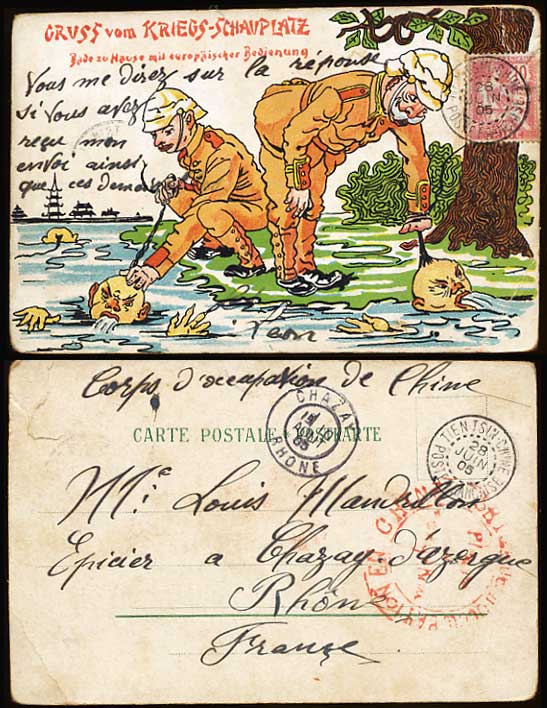 GRUSS vom KRIEGS-SCHAUPLATZ
Bade zu Hause mit europäischer Bedienung
Vous me direz sur la réponse
si vous avez
reçu mon
envoi ainsi
que ces
Leon
28
JUIN
05
Corps d'occupation de Chine
CHAZAY
RHONE
05
CARTE POSTALE • POSTKARTE
TIEN-TSIN-CHINE
28
JUIN
05
POSTE FRANÇAISE
Mr Louis Mandrillon
Epicier a Chazay d'azergue
Rhône
France